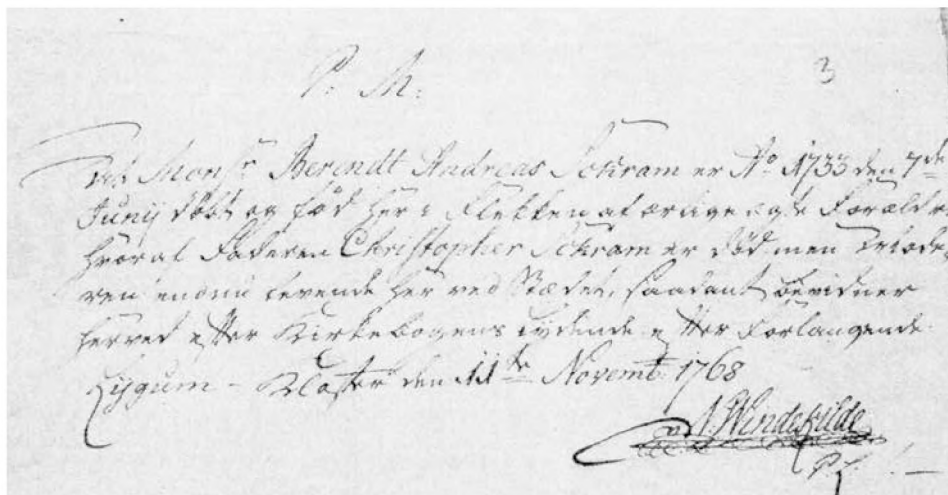 P. M.
3
Att Monsr. Berendt Andreas Sökram er Ao. 1733 den 7de
Junij döbt og föd her i Flekken af ærlige egte Forældre
hvoraf Faderen Christopher Sökram er död, men Mode-
ren endnu levende her ved Stædet, saadant bevidner
herved efter Kirkebogens lydende efter Forlangende.
Lygum-Kloster den 11te Novembr. 1768